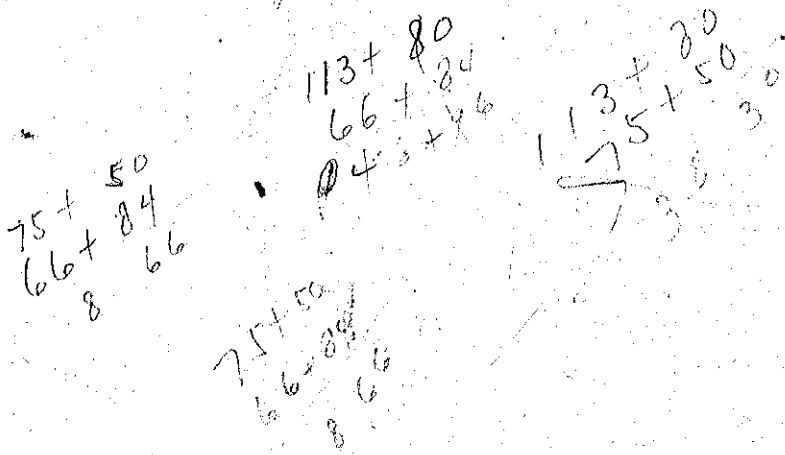 75+ 50
66+ 84
8 66
113+ 80
66+ 84
113+ 80
75+ 50
30
75+50
66+
8 66